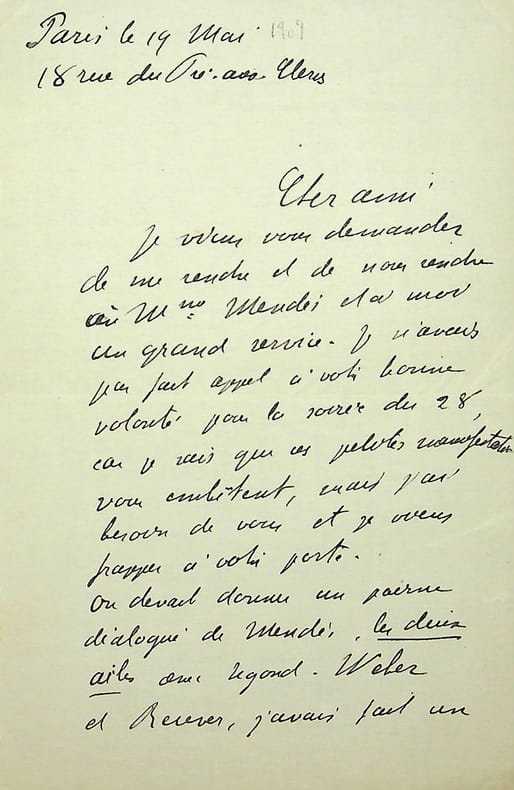 Paris le 19 Mai 1909
18 rue du Pré-aux-Clercs
Cher ami
Je viens vous demander
de me rendre et de nous rendre
à Mme Mendès et à moi
un grand service. Je n'avais
pas fait appel à votre bonne
volonté pour la soirée du 28,
car je sais que ces petites manifestations
vous embêtent, mais j'ai
besoin de vous et je viens
frapper à votre porte.
On devait donner un poème
dialogué de Mendès, les deux
ailes avec Segond-Weber
et , j'avais fait un